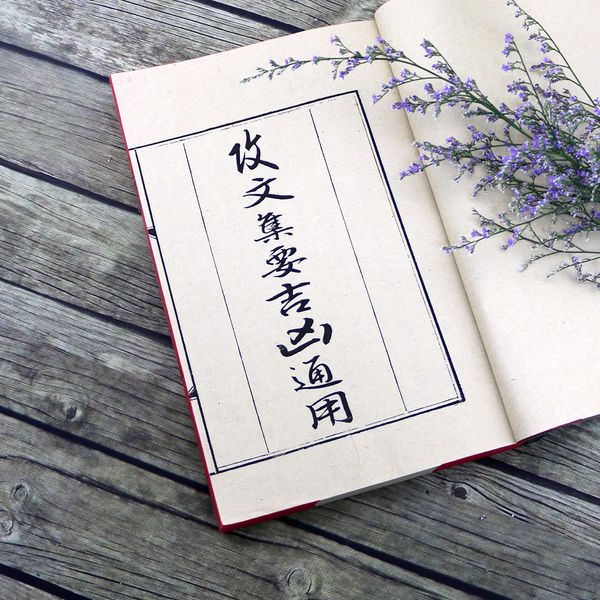 攷文集要吉凶通用